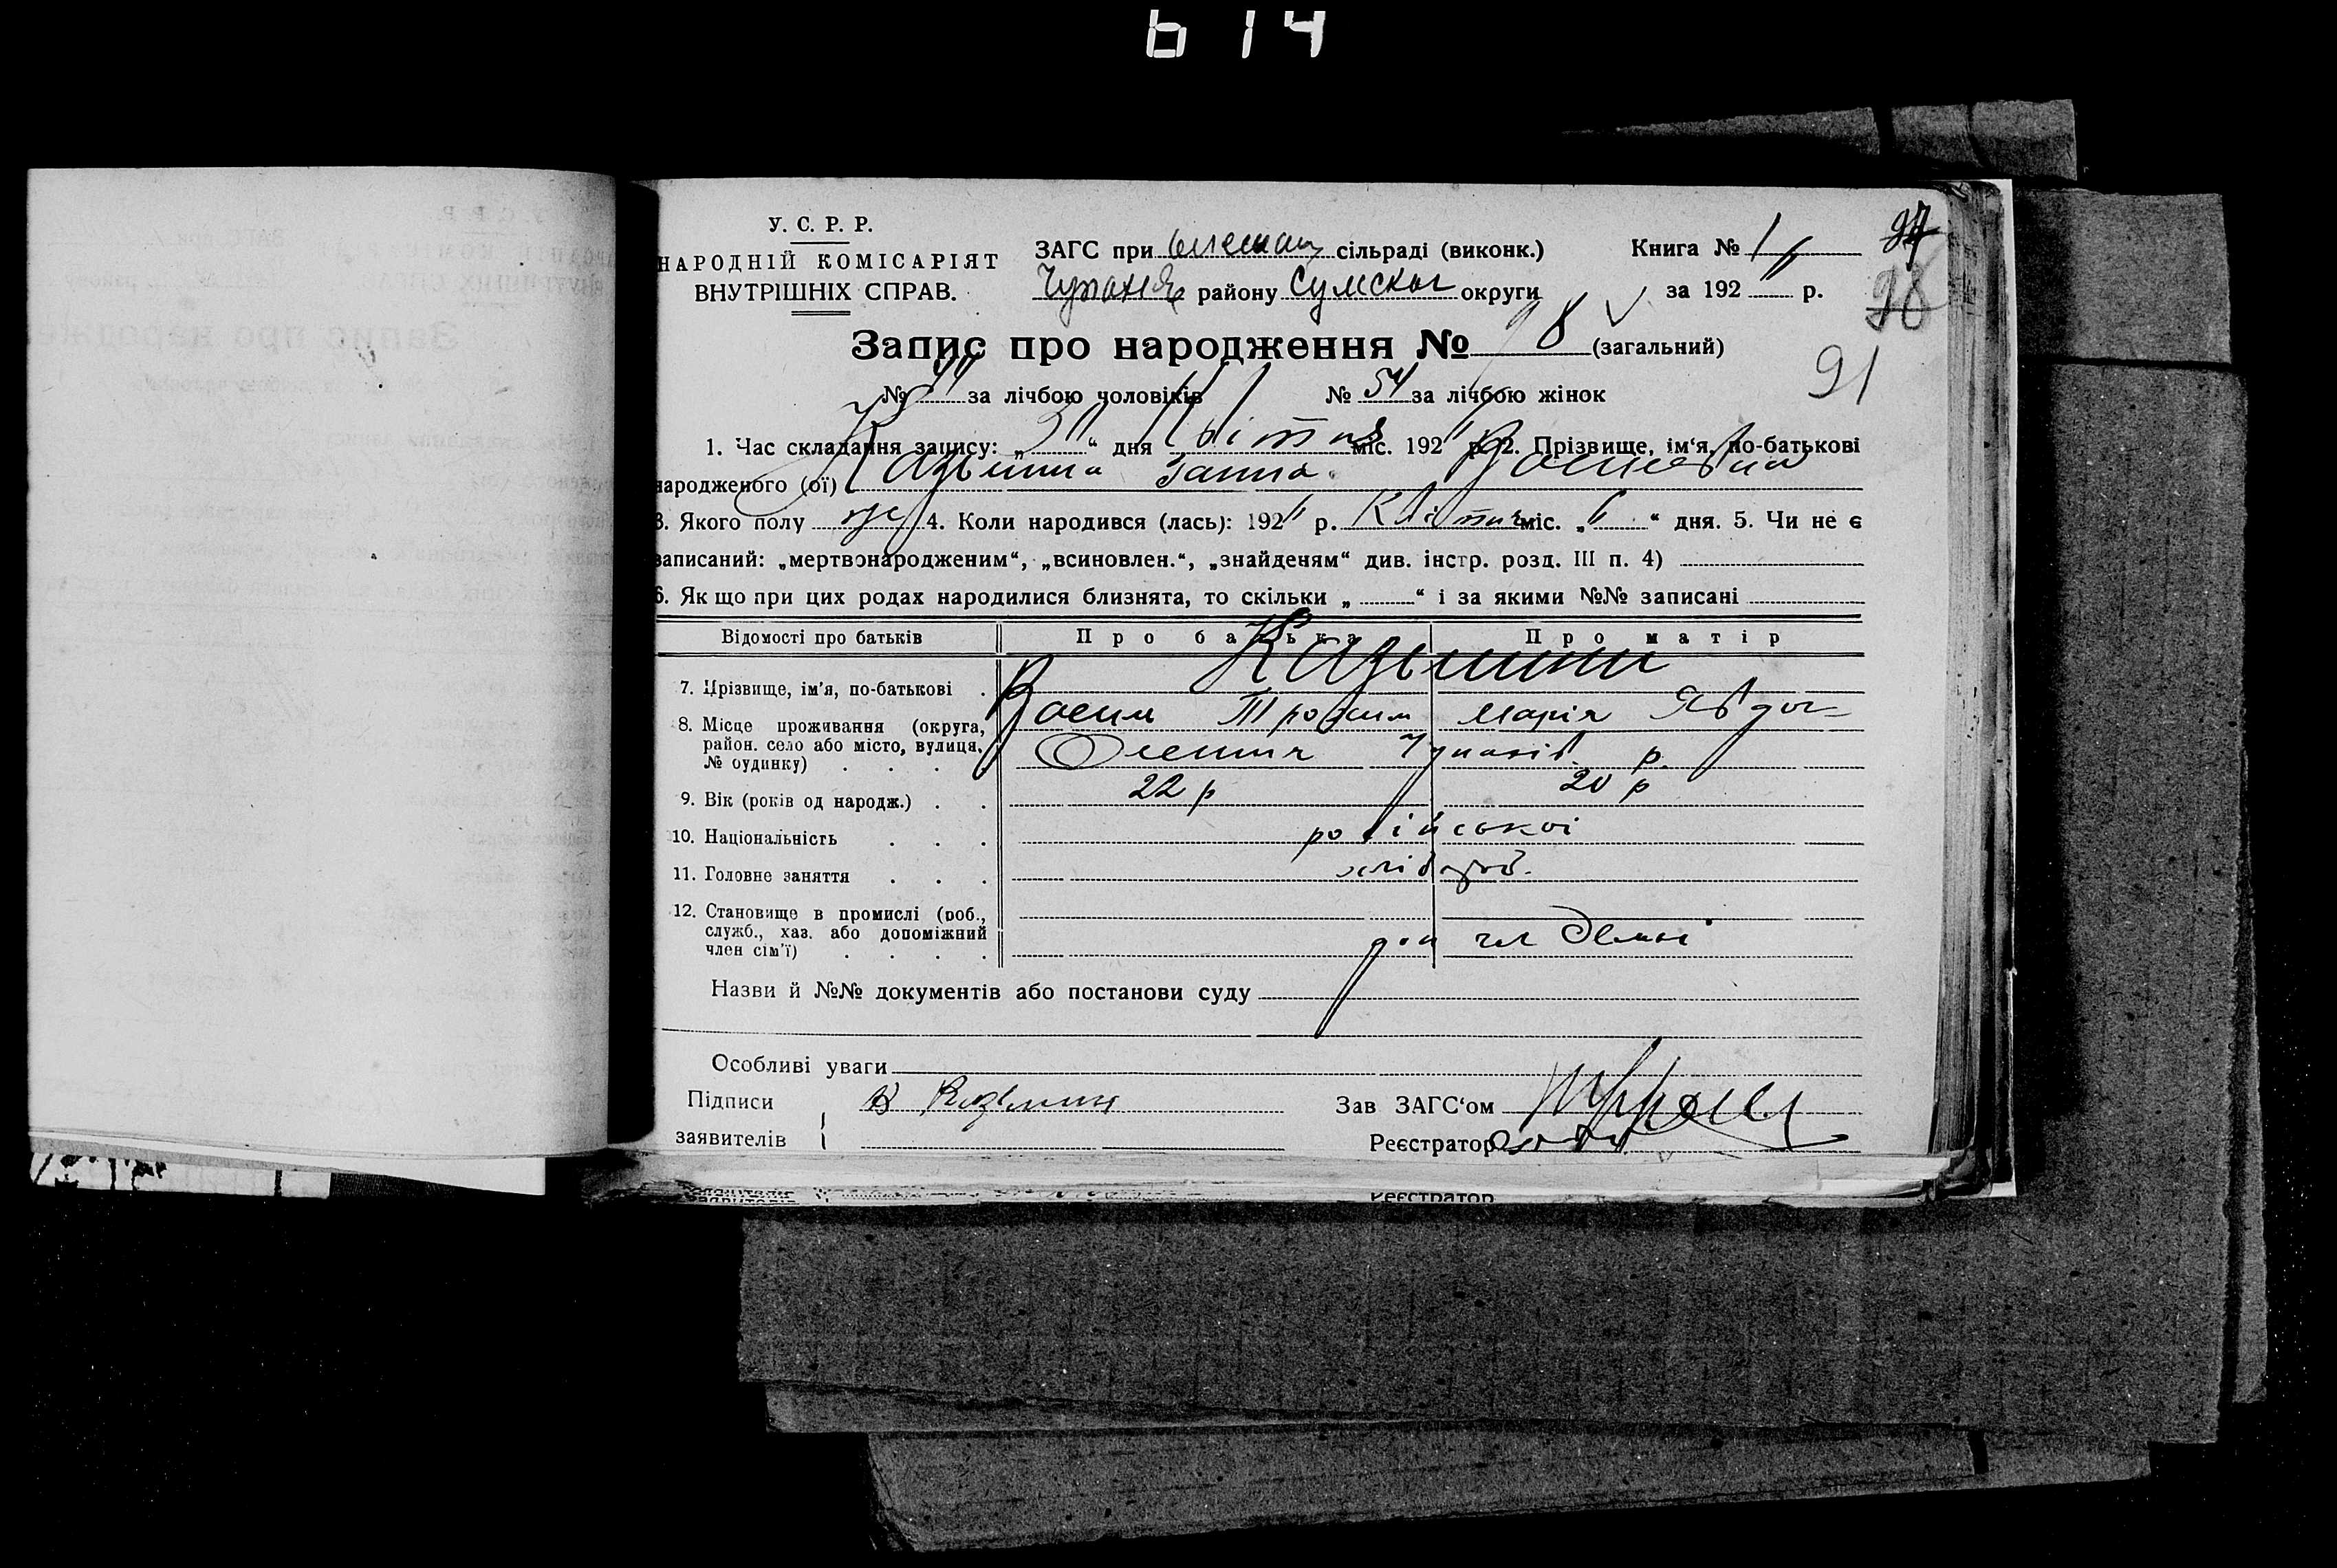 614
У. С. Р. Р.
НАРОДНІЙ КОМІСАРІЯТ
ВНУТРІШНІХ СПРАВ.
ЗАГС при сільраді (виконк.)
району Сумської округи
Книга № 1
за 192 р.
97
98
91
Запис про народження № 98 (загальний)
№ 44 за лічбою чоловіків № 54 за лічбою жінок
1. Час складання запису: „ “ дня Квітня міс. 192 р. 2. Прізвище, ім‘я, по-батькові
народженого (ої) Казьмина Ганна
3. Якого полу ж 4. Коли народився (лась): 192 р. Квітня міс. „ “ дня. 5. Чи не є
записаний: „мертвонародженим“, „всиновлен.“, „знайденям“ див. інстр. розд. III п. 4)
6. Як що при цих родах народилися близнята, то скільки „ “ і за якими №№ записані
Відомості про батьків Про батька Про матір
Казьмини
7. Прізвище, ім'я, по-батькові
Василь Трохим Марія Явдок
8. Місце проживання (округа,
район. село або місто, вулиця,
№ будинку)
Олешня Чупахів. р.
9. Вік (років од народж.) 22 р 20 р
10. Національність російської
11. Головне заняття хлібороб.
12. Становище в промислі (роб.,
служб., хаз. або допоміжний
член сім'ї)
доп чл
Назви й №№ документів або постанови суду
Особливі уваги
Підписи
заявителів
В Казьмин
Зав ЗАГС‘ом
Реєстратор
Реєстратор